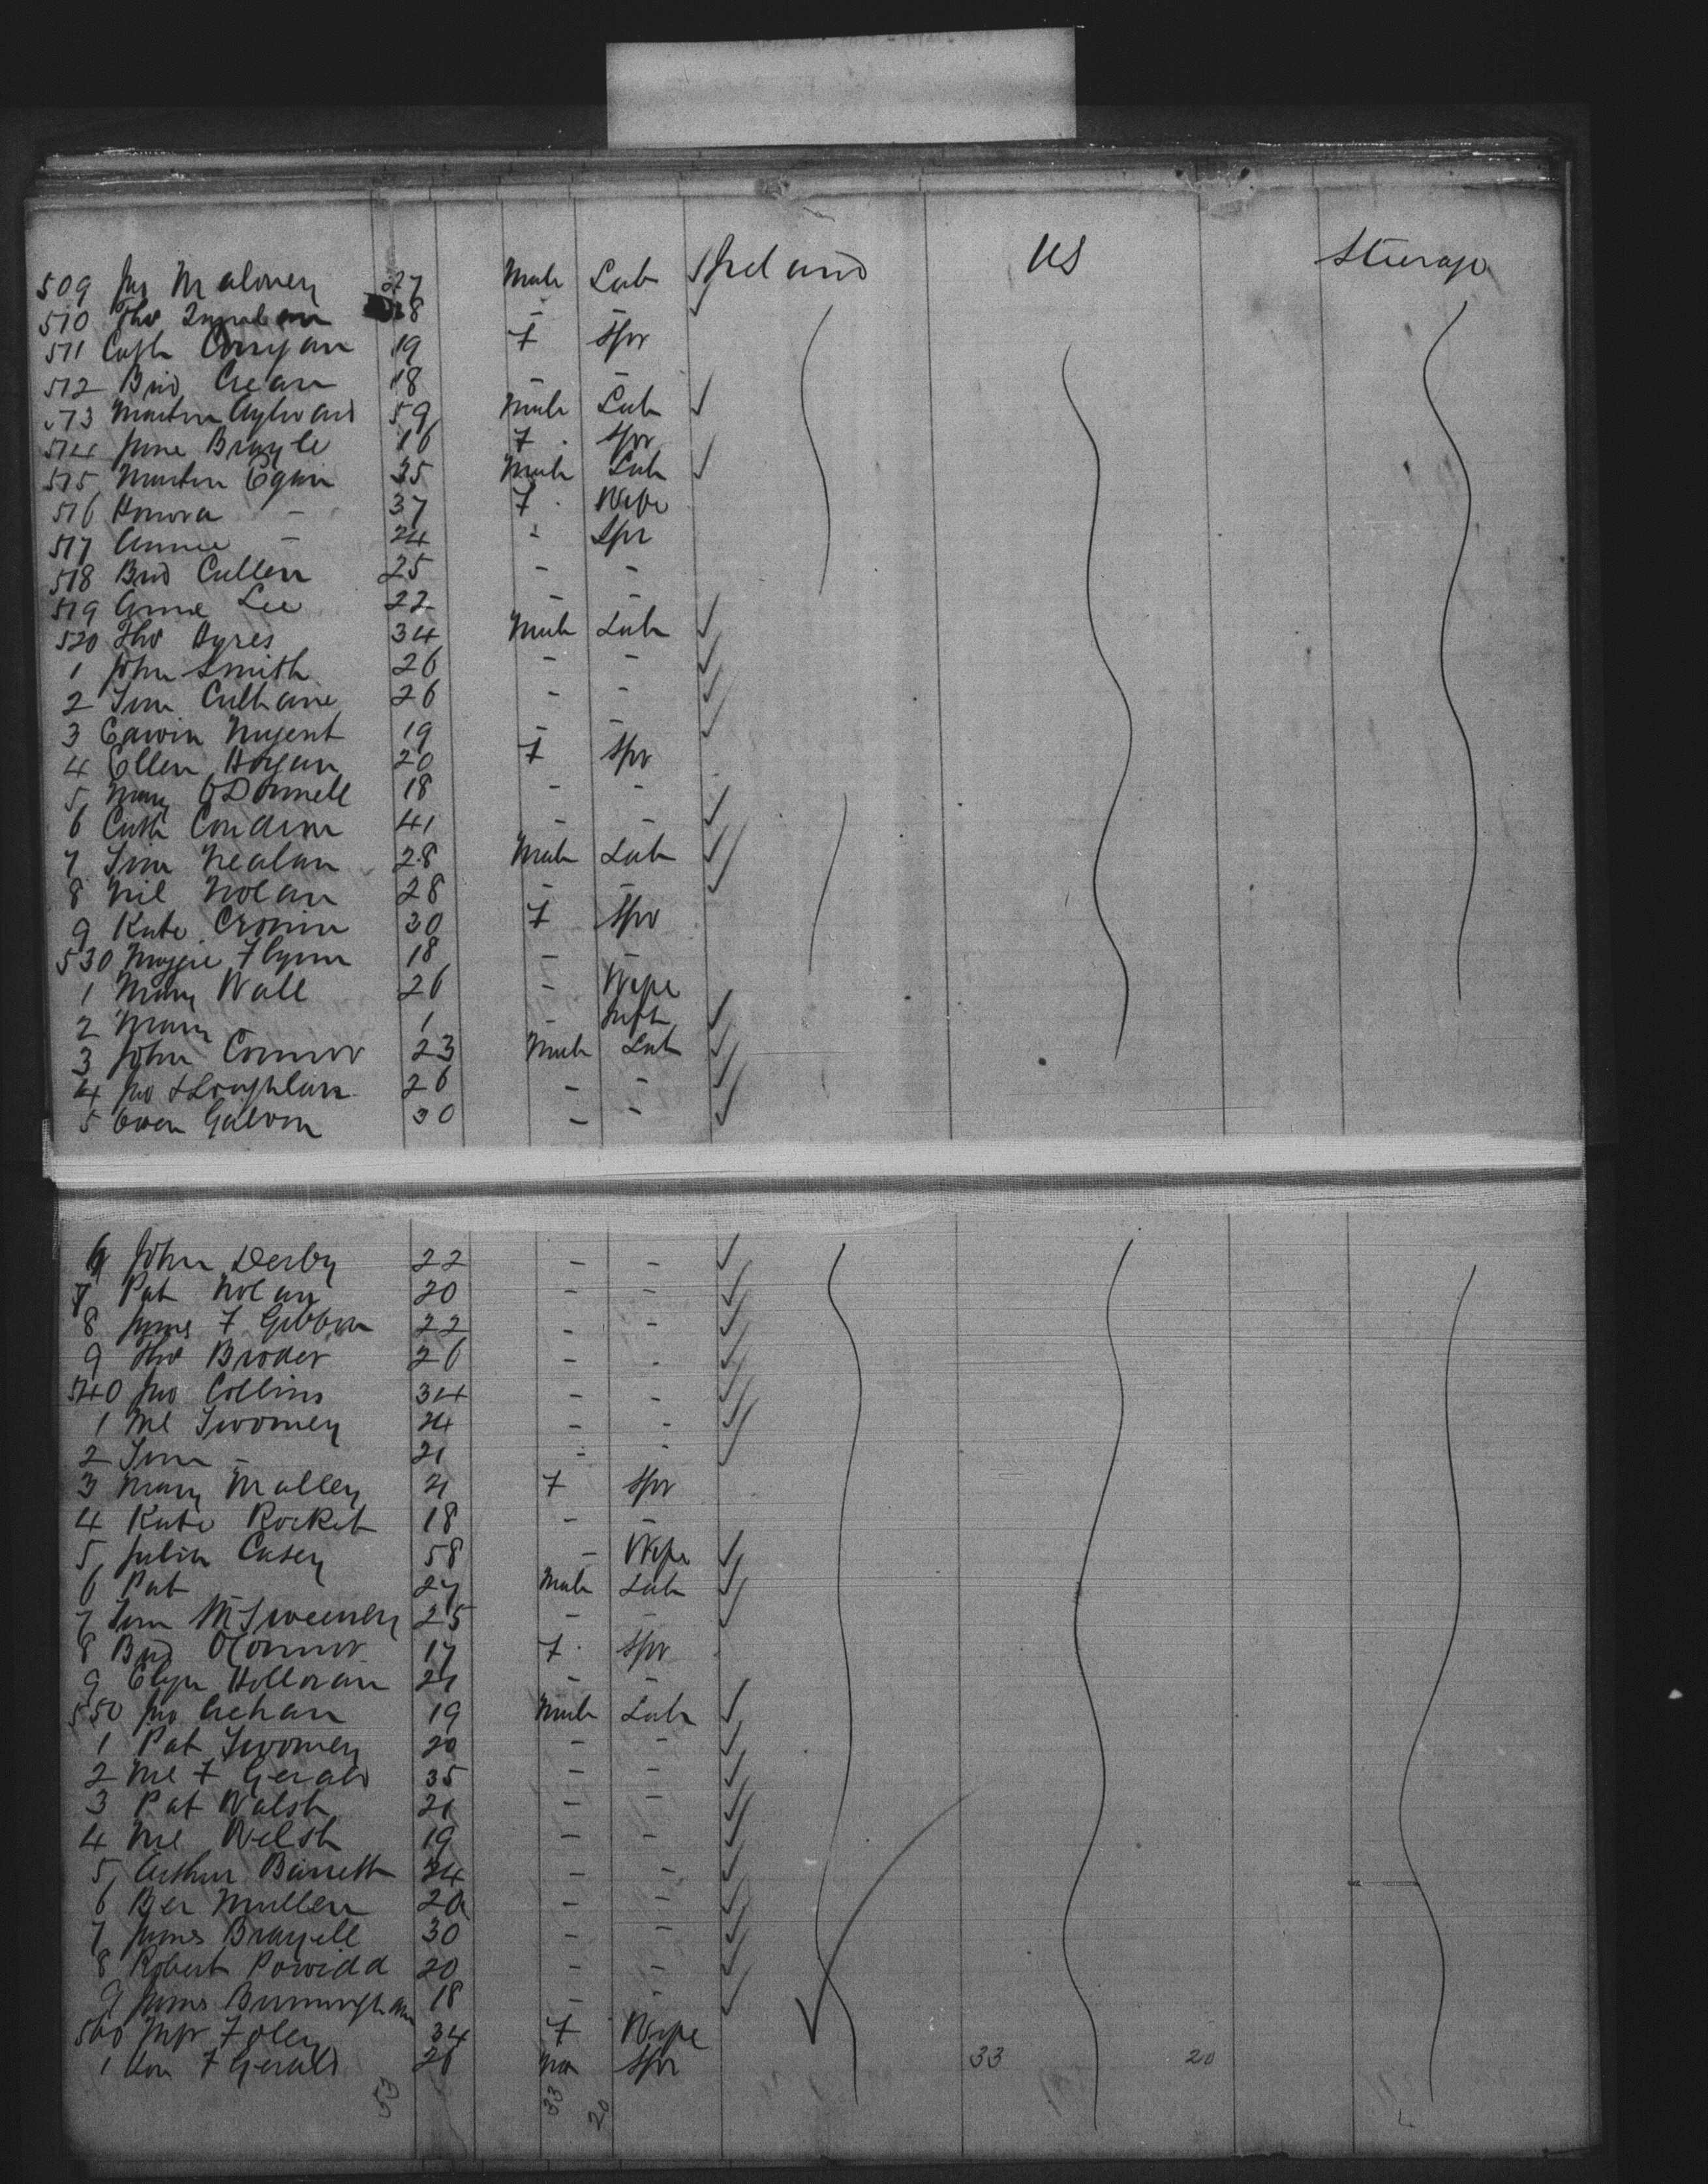 509 Jas Maloney 27 Male Lab Ireland US Steerage
510 Tho 18 - -
511 Cath Corrigan 19 F Spr
512 Brid Crean 18 - -
513 Martin Aylward 59 Male Lab
514 Jane 16 F Spr
515 Martin Egan 35 Male Lab
516 Honora - 37 F Wife
517 Annie - 24 - Spr
518 Brid Cullen 25 - -
519 Anne Lee 22 - -
520 Tho Ayres 34 Male Lab
1 John Smith 26 - -
2 Tim Culhane 26 - -
3 Edwin Nugent 19 - -
4 Ellen Hogan 20 F Spr
5 Mary O'Donnell 18 - -
6 Cath Condron 41 - -
7 Tim Nealan 28 Male Lab
8 Mil Nolan 28 - -
9 Kate Cronin 30 F Spr
530 Maggie Flynn 18 -
1 Mary Wall 26 - Wife
2 Mary 1 - Inft
3 John Connor 23 Male Lab
4 Jno O'Loughlin 26 - -
5 Owen Galvin 30 - -
6 John Derby 22 - -
7 Pat Nolan 20 - -
8 James F Gibbon 22 - -
9 Tho Broder 26 - -
540 Jno Collins 34 - -
1 Ml Twomey 24 - -
2 Tim - 21 - -
3 Mary Malley 21 F Spr
4 Kate Rocket 18 - -
5 Julia Casey 58 - Wife
6 Pat 27 Male Lab
7 Tim McSweeney 25 - -
8 Brid O'Connor 17 F Spr
9 Elizn Holloran 21 - -
550 Jno 19 Male Lab
1 Pat Twomey 20 - -
2 Ml F Gerald 35 - -
3 Pat Walsh 21 - -
4 Ml Welsh 19 - -
5 Arthur Barrett 24 - -
6 Ber Mullen 20 - -
7 James Brazell 30 - -
8 Robert 20 - -
9 James Burmingham 18 - -
560 Mgr Foley 34 F Wife
1 Hon F Gerald 26 Spr 33 20
53 33 20